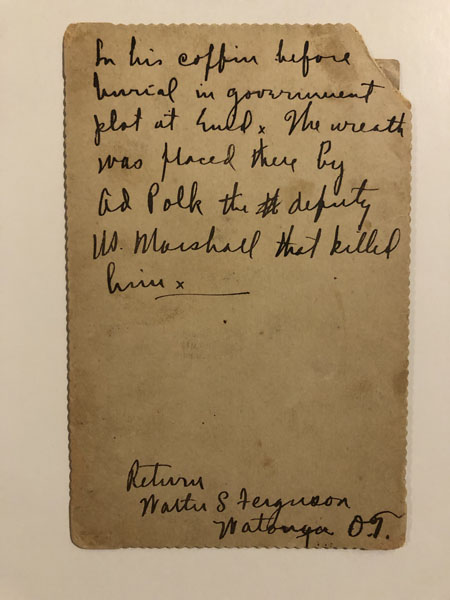 In his coffin before
burial in government
plot at Enid x The wreath
was placed there by
Ad Polk the deputy
US. Marshall that killed
him x
Return
Walter S Ferguson
Watonga O.T.